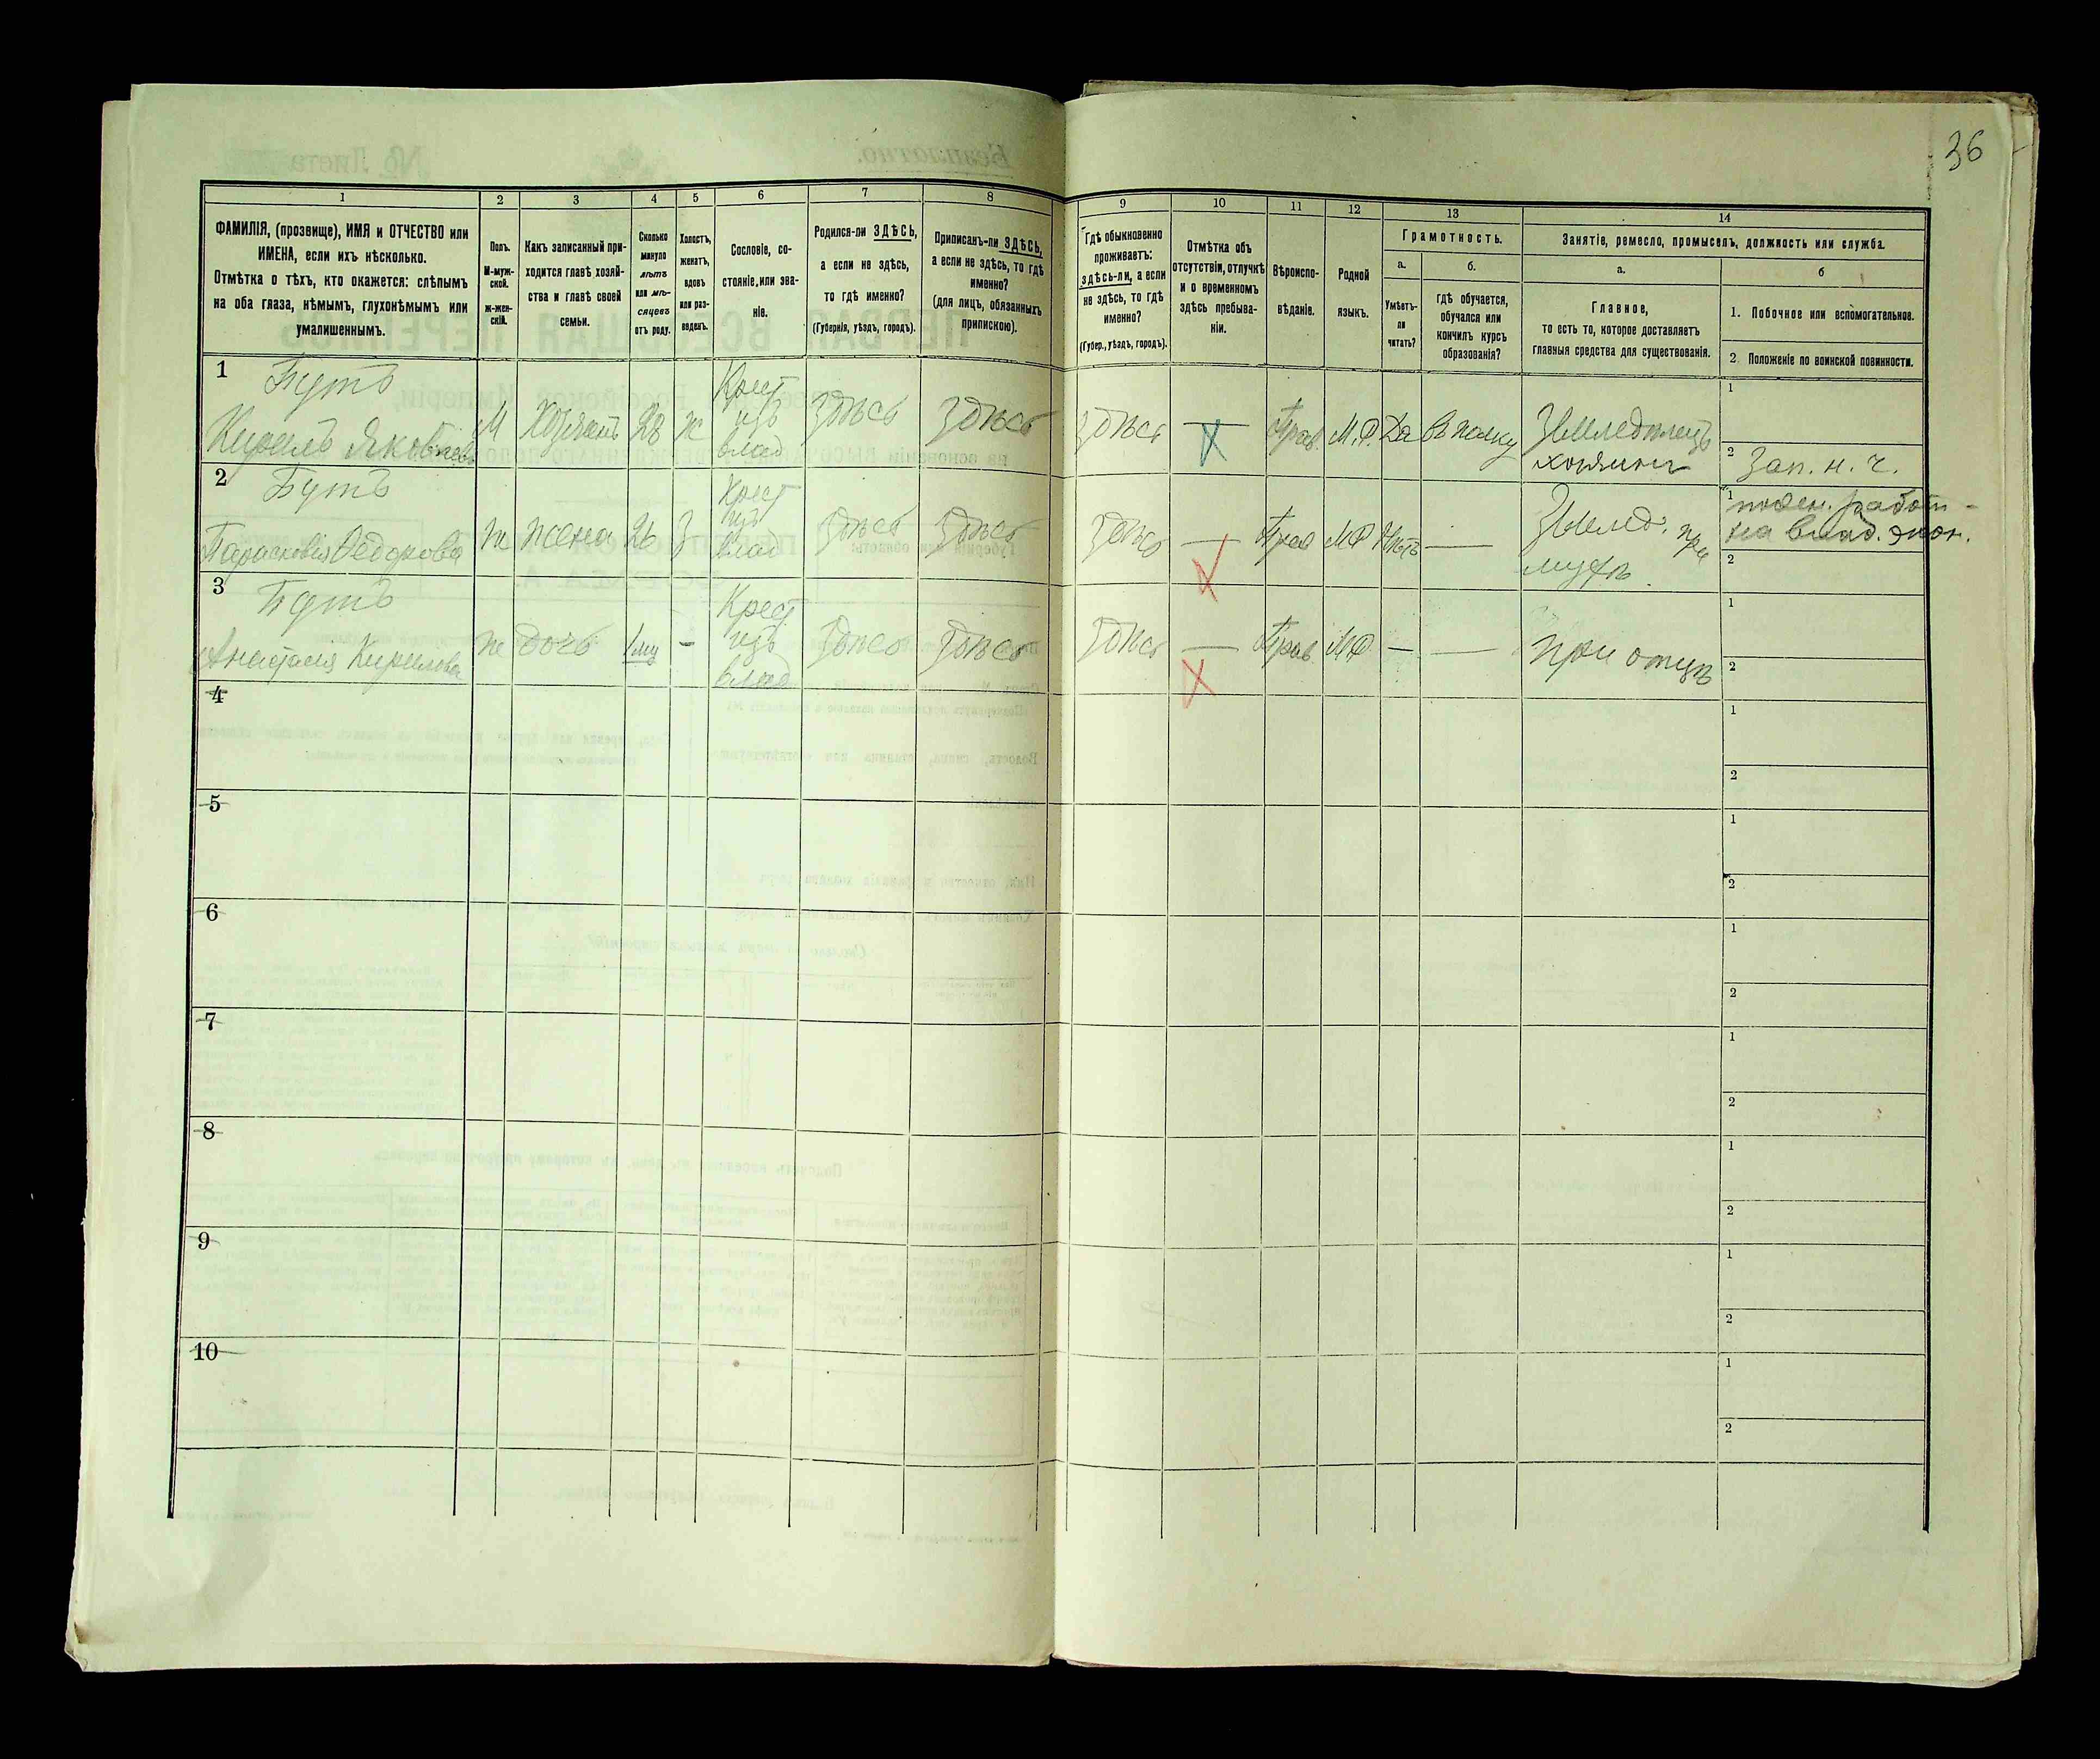 36
1 2 3 4 5 6 7 8 9 10 11 12 13 14
ФАМИЛІЯ, (прозвище), ИМЯ и ОТЧЕСТВО или
ИМЕНА, если ихъ нѣсколько.
Отмѣтка о тѣхъ, кто окажется: слѣпымъ
на оба глаза, нѣмымъ, глухонѣмымъ или
умалишеннымъ.
Полъ.
М-муж-
ской.
ж-жен-
скій.
Какъ записанный при-
ходится главѣ хозяй-
ства и главѣ своей
семьи.
Сколько
минуло
лѣтъ
или мѣ-
сяцевъ
отъ роду.
Холостъ,
женатъ,
вдовъ
или раз-
веденъ.
Сословіе, со-
стояніе, или зва-
ніе.
Родился-ли ЗДѢСЬ,
а если не здѣсь,
то гдѣ именно?
(Губернія, уѣздъ, городъ).
Приписанъ-ли ЗДѢСЬ,
а если не здѣсь, то гдѣ
именно?
(для лицъ, обязанныхъ
припискою).
Гдѣ обыкновенно
проживаетъ:
здѣсь-ли, а если
не здѣсь, то гдѣ
именно?
(Губер., уѣздъ, городъ).
Отмѣтка объ
отсутствіи, отлучкѣ
и о временномъ
здѣсь пребыва-
ніи.
Вѣроиспо-
вѣданіе.
Родной
языкъ.
Грамотность.
а.
Умѣетъ-
ли
читать?
б.
гдѣ обучается,
обучался или
кончилъ курсъ
образованія?
Занятіе, ремесло, промыселъ, должность или служба.
а.
Главное,
то есть то, которое доставляетъ
главныя средства для существованія.
б
1. Побочное или вспомогательное.
2. Положеніе по воинской повинности.
1 Бутъ
Кирилъ Яковлевъ М Хозяинъ 28 ж Крест изъ влад здѣсь здѣсь здѣсь — Прав. М.Р. Да въ полку Земледѣлецъ
хозяинъ
1
2 Зап. н. ч.
2 Бутъ
Парасковія Ѳедорова ж жена 26 З Крест изъ влад здѣсь здѣсь здѣсь — Прав М.Р. Нѣтъ — Землед. при
мужѣ
1 поден. работ-
на влад. экон.
2
3 Бутъ
Анастасія Кирилова ж дочь 1 мц — Крест изъ влад здѣсь здѣсь здѣсь — Прав М.Р. — — при отцѣ
1
2
4
1
2
5
1
2
6
1
2
7
1
2
8
1
2
9
1
2
10
1
2